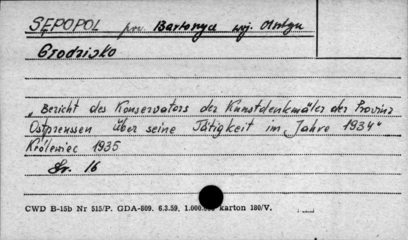 SĘPOPOL pow. Bartoszyce woj. Olsztyn
Grodzisko
„Bericht des Konservators der Kunstdenkmäler der Provinz
Ostpreussen über seine Tätigkeit im Jahre 1934"
Królewiec 1935
Str. 16
CWD B-15b Nr 515/P. GDA-809. 6.3.59. 1.000.000 karton 180/V.